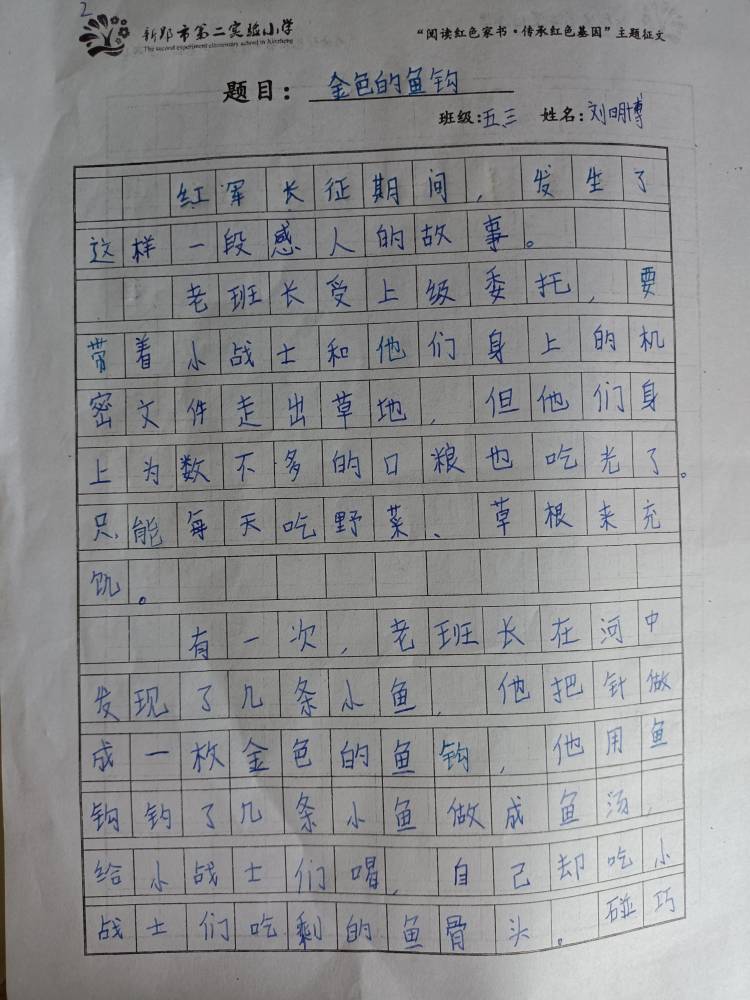 2
新郑市第二实验小学
The second experiment elementary school in Xinzheng
“阅读红色家书·传承红色基因”主题征文
题目：金色的鱼钩
班级：五三 姓名：刘明博
红军长征期间，发生了
这样一段感人的故事。
老班长受上级委托，要
带着小战士和他们身上的机
密文件走出草地，但他们身
上为数不多的口粮也吃光了。
只能每天吃野菜、草根来充
饥。
有一次，老班长在河中
发现了几条小鱼，他把针做
成一枚金色的鱼钩，他用鱼
钩钓了几条小鱼做成鱼汤，
给小战士们喝，自己却吃小
战士们吃剩的鱼骨头。碰巧